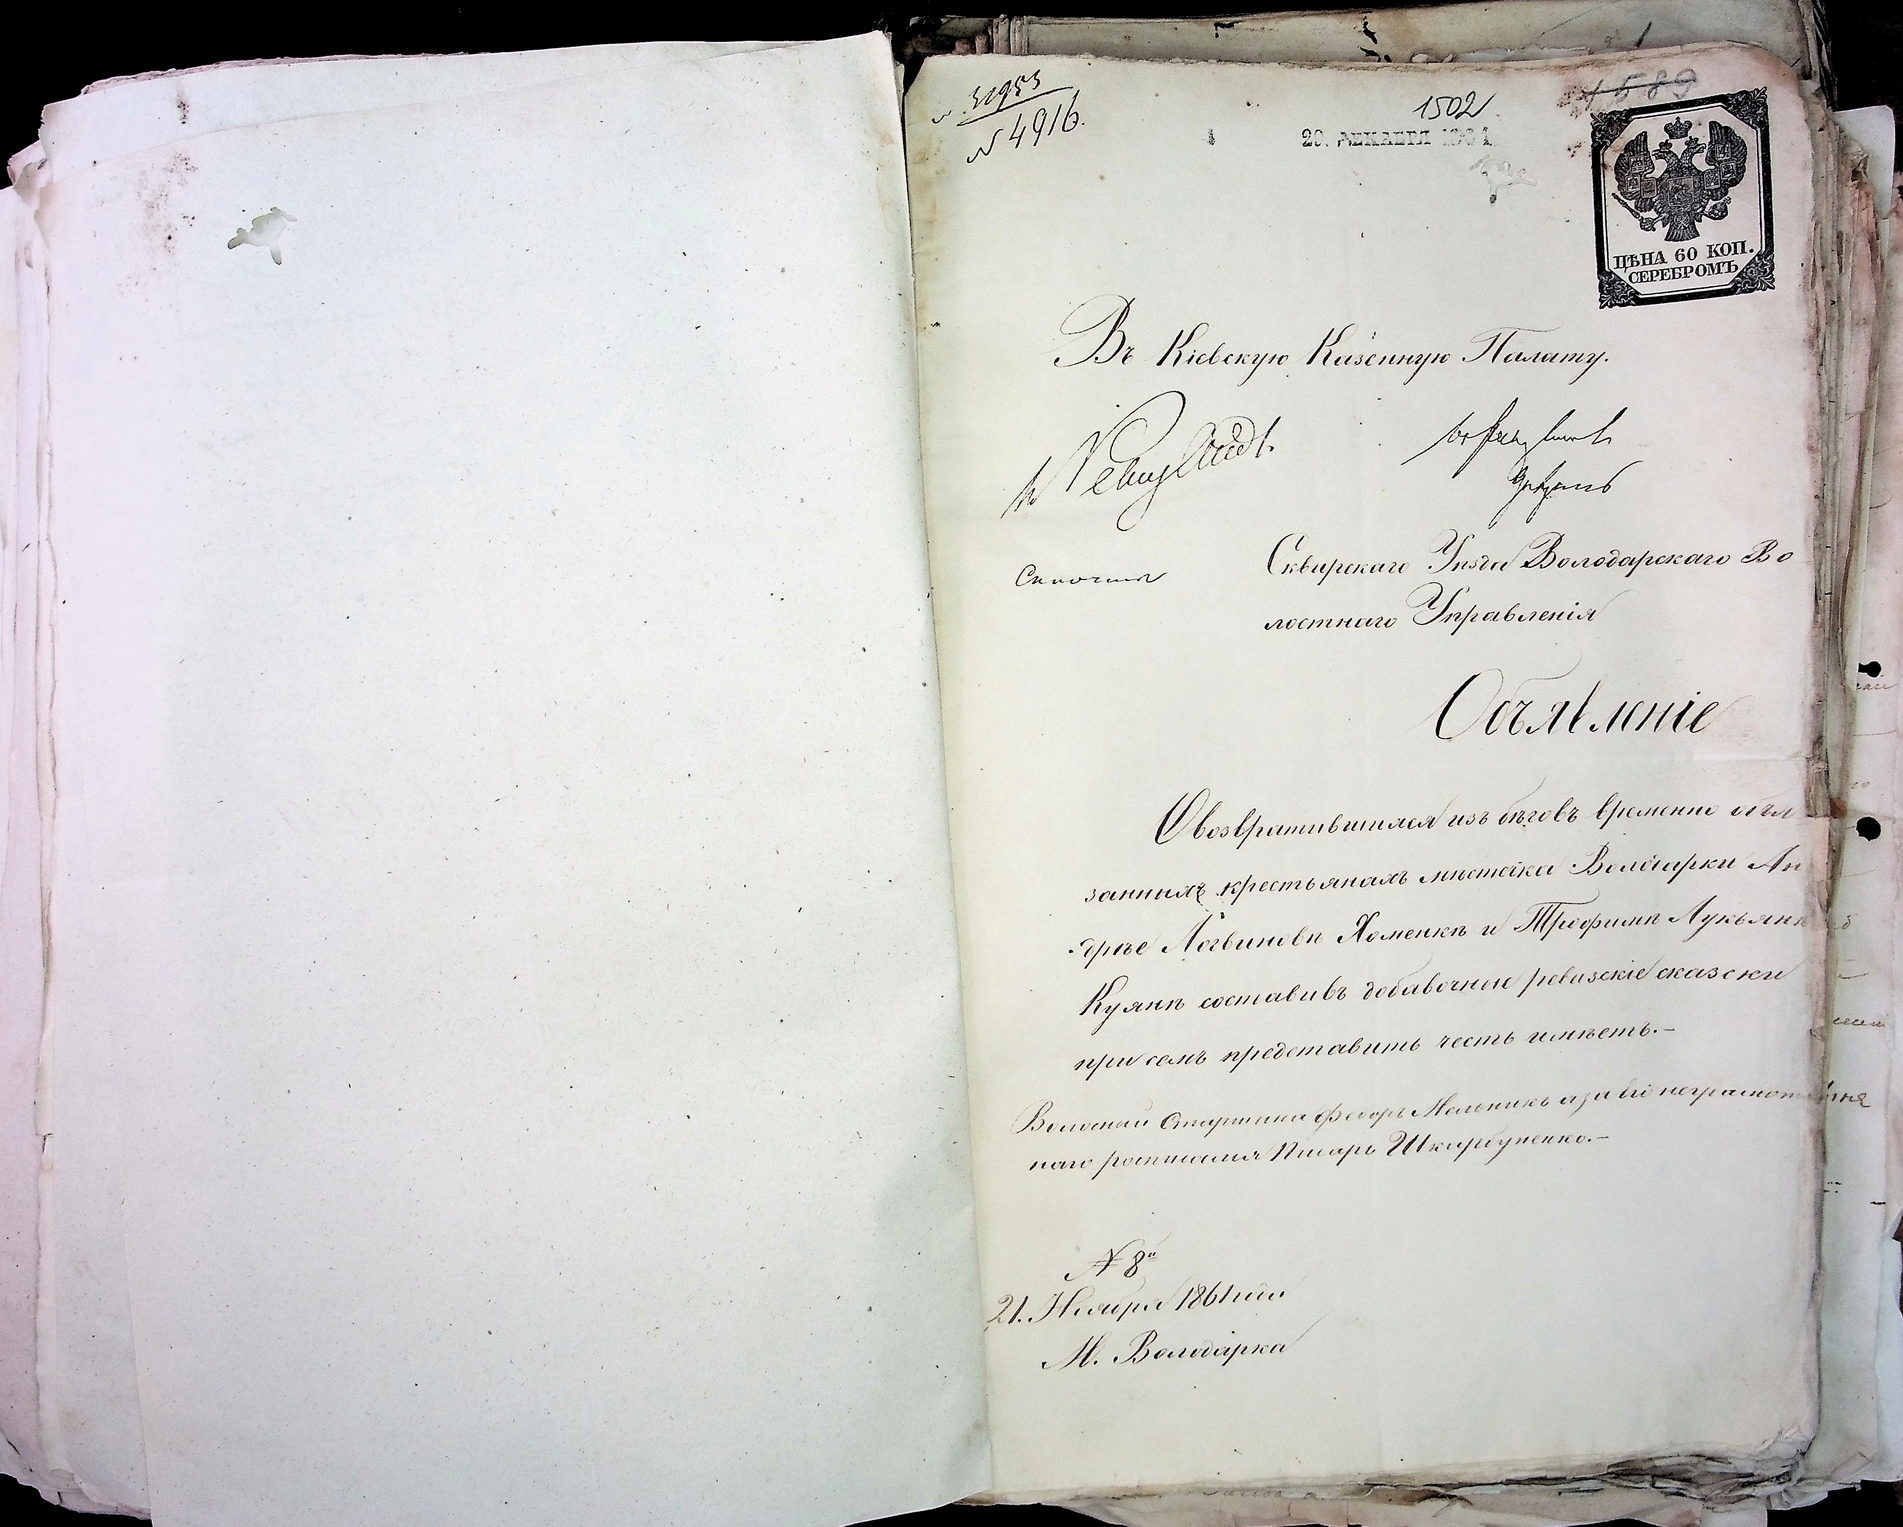 32953
№ 4916.
1502
1589
20. ДЕКАБРЯ 1861
ЦѢНА 60 КОП.
СЕРЕБРОМЪ
Въ Кіевскую Казенную Палату.
Сквирскаго Уѣзда Володарскаго Во
лостнаго Управленія
Объявленіе
О возвратившихся изъ бѣговъ временно обя
занныхъ крестьянахъ мѣстечка Володарки Ан
дрѣе Логвиновѣ Хоменкѣ и Трофимѣ Лукьянѣ
Куянѣ составивъ добавочные ревизскіе сказски
при семъ представить честь имѣетъ.-
Волосный Старшина Федоръ Мельникъ а за его неграмот
наго росписался Писарь Шкарупенко.-
№ 8й
21. Ноября 1861 года
М. Володарка